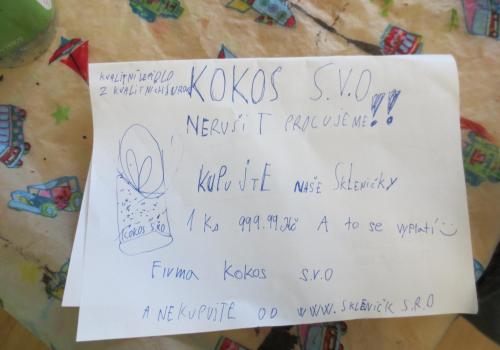 KVALITNÍ LEPIDLO
Z KVALITNICH SUROV
KOKOS S.V.O
NERUŠIT PRACUJEME!!
KUPUJTE NAŠE SKLENIČKY
1 Ks 999.99 Kč A to se vyplatí
KOKOS S.R.O
Firma Kokos s.v.o
A NEKUPUJTE OD WWW.SKLENIČK S.R.O